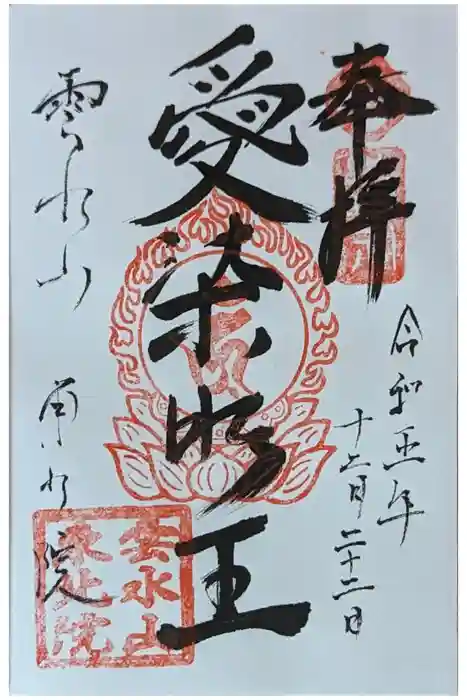 奉拝
令和五年
十二月二十二日
愛染明王
雲水山
東北院
雲水山
東北院